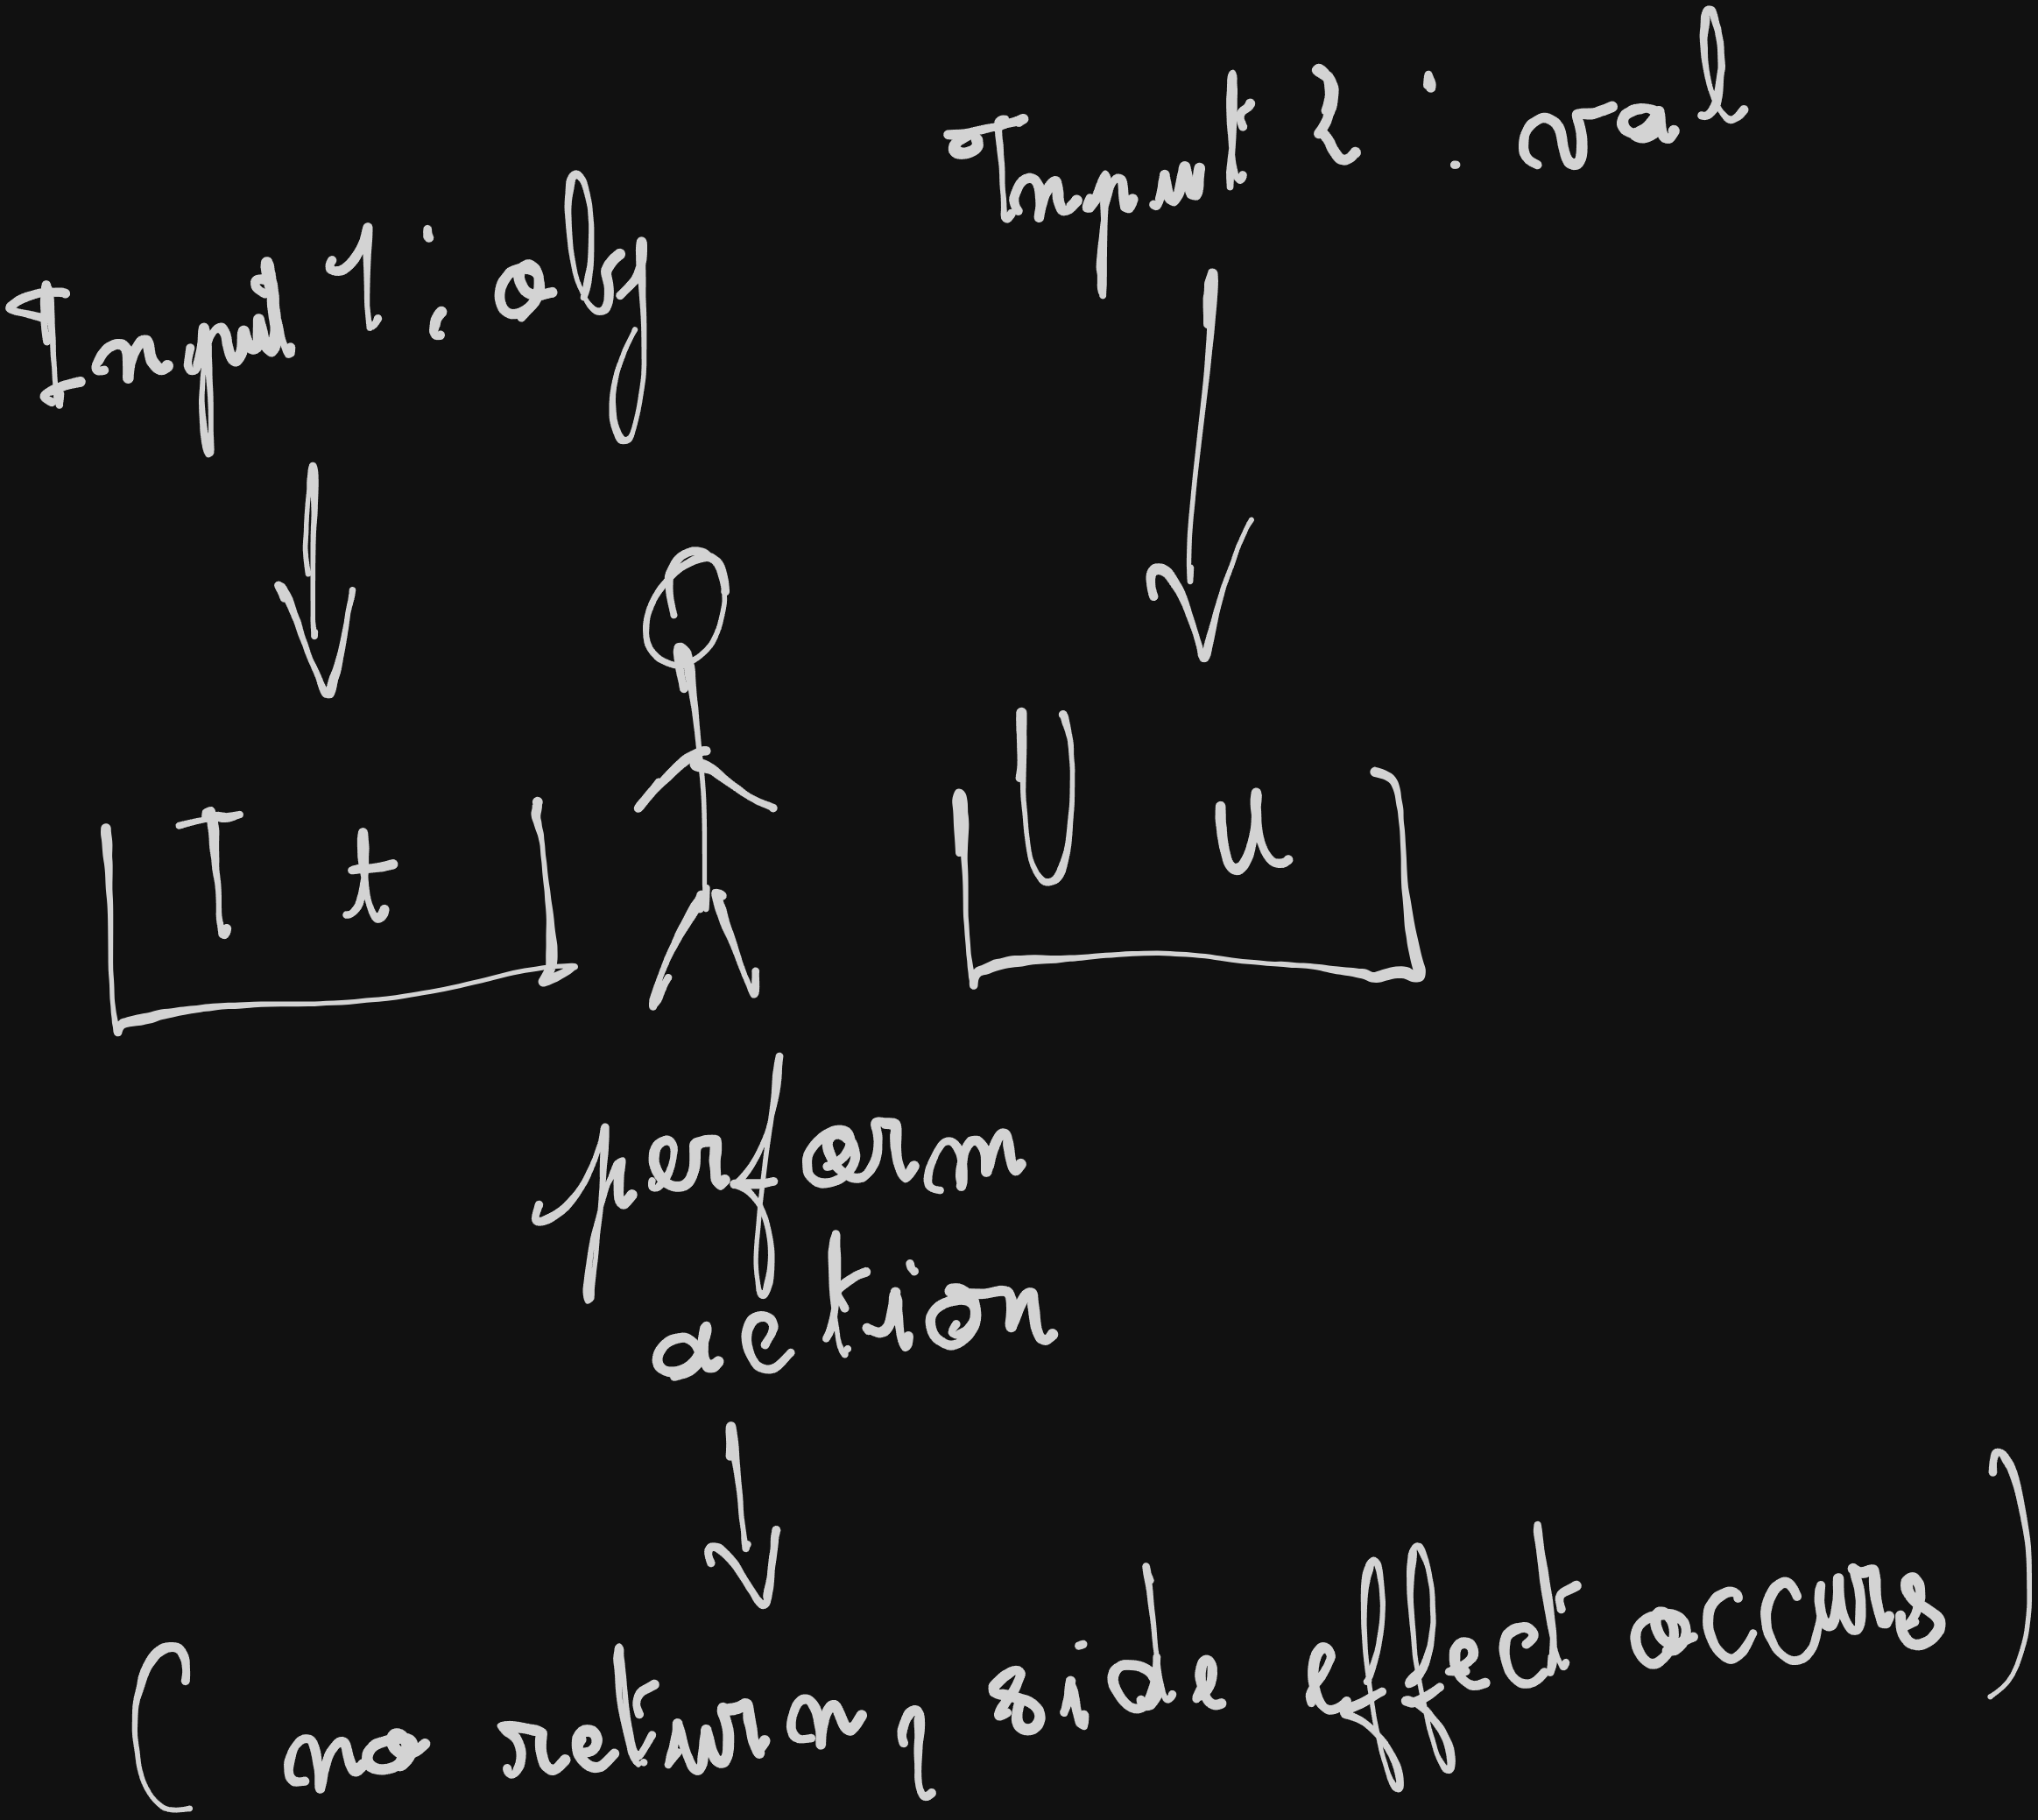 Input 1: obj
Input 2: val
T t
U u
perform
action
(no return, side effect occurs)